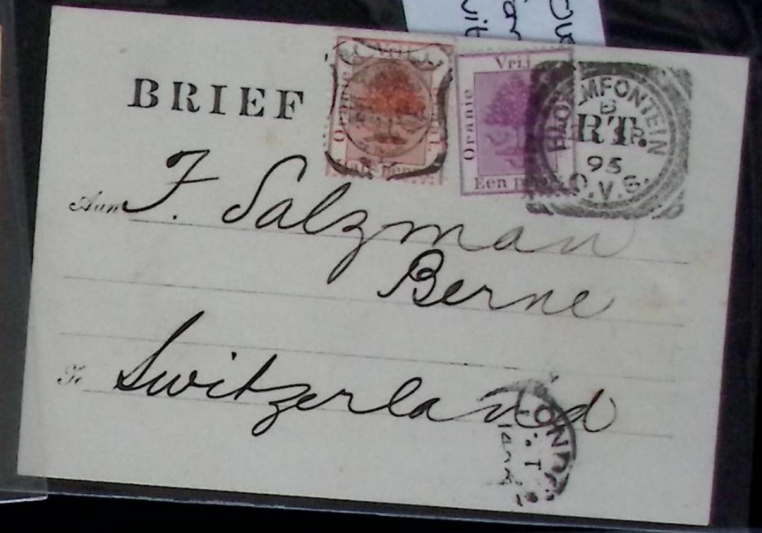 BRIEF
Oranje Vrij
Half penny
Oranje Vrij
Een
BLOEMFONTEIN
B
RT.
95
O.V.S.
Aan F. Salzman
Berne
Te Switzerland
OND